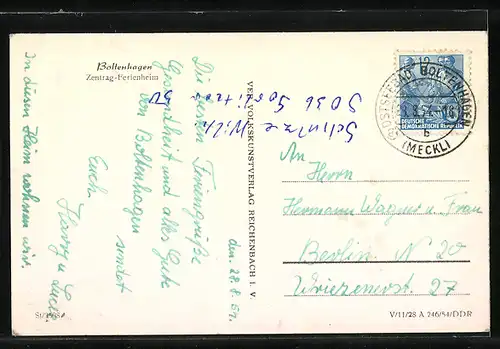 Boltenhagen
Zentrag-Ferienheim
den 28.8.57.
Die besten Feriengrüße
Gesundheit und alles Gute
von Boltenhagen sendet
Euch
Harry u.
In diesem Heim wohnen wir.
VEB VOLKSKUNSTVERLAG REICHENBACH I. V.
OSTSEEBAD BOLTENHAGEN
b
(MECKL)
DEUTSCHE
DEMOKRATISCHE REPUBLIK
12
An Herrn
Hermann Wagner u. Frau
Berlin N 20
Wriezenerst. 27
V/11/28 A 246/54/DDR